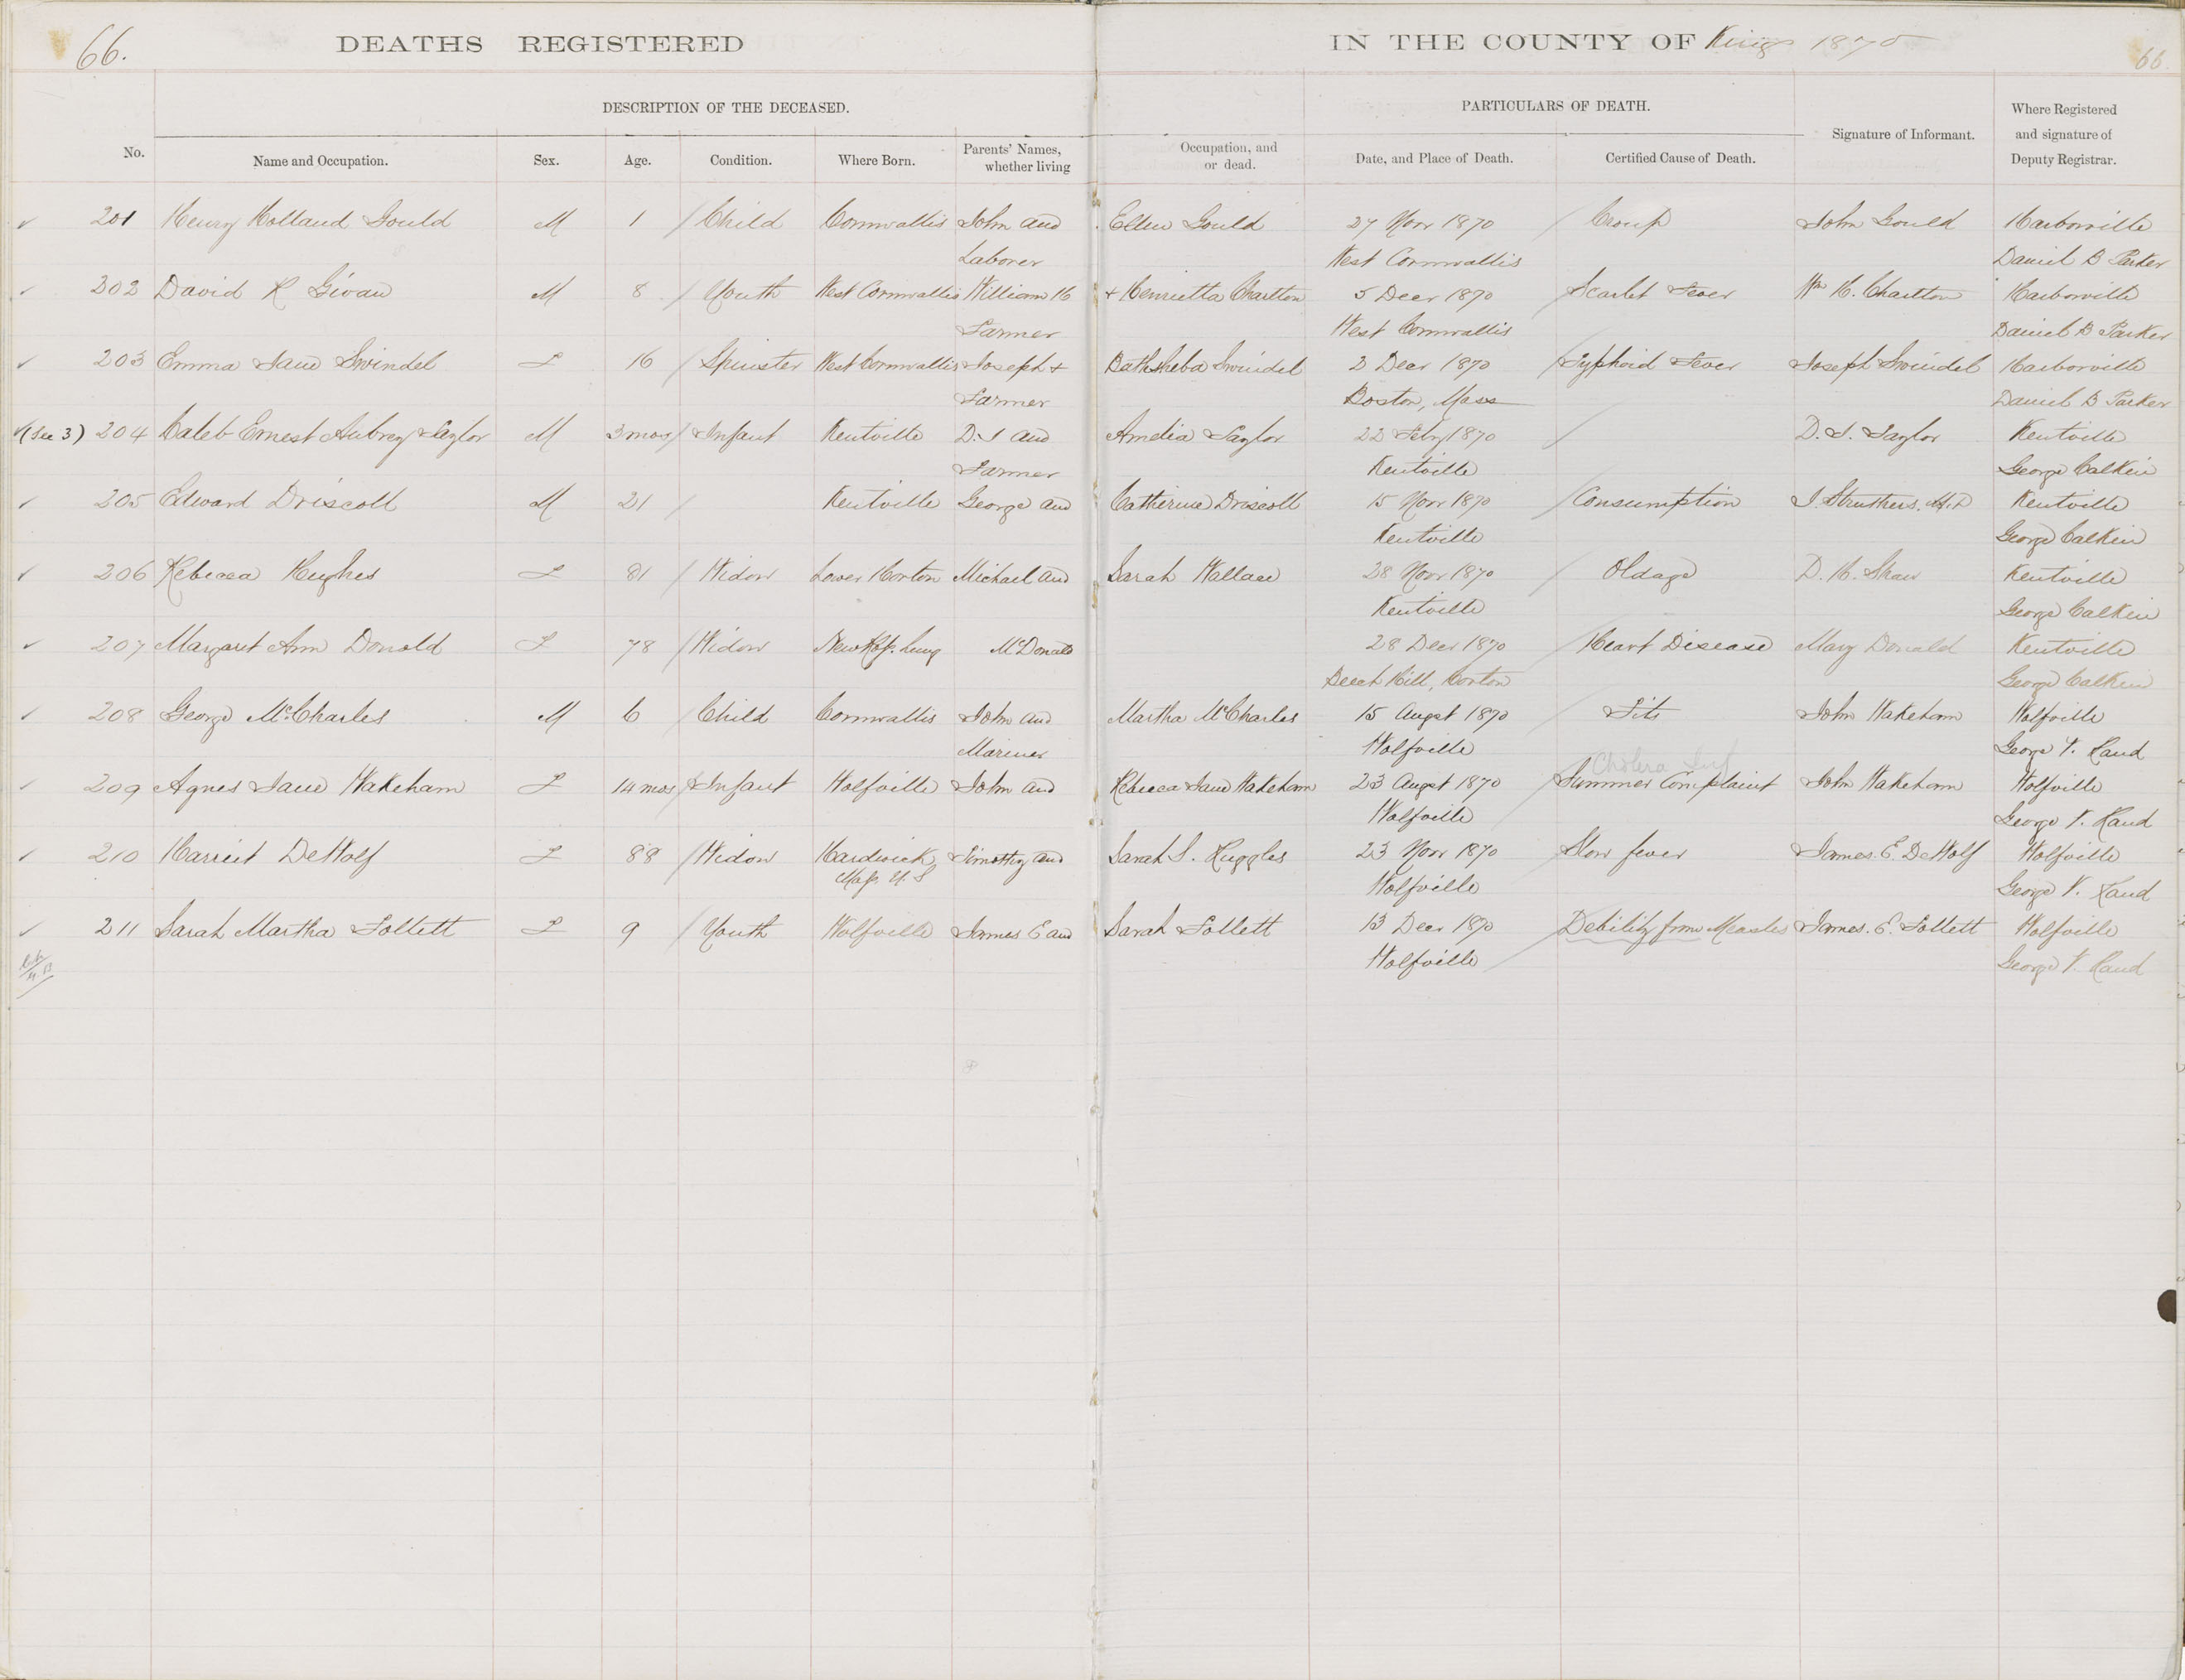 66.
DEATHS REGISTERED
IN THE COUNTY OF Kings 1870
66.
DESCRIPTION OF THE DECEASED.
PARTICULARS OF DEATH.
Where Registered
and signature of
Deputy Registrar.
No.
Name and Occupation.
Sex.
Age.
Condition.
Where Born.
Parents' Names,
whether living
Occupation, and
or dead.
Date, and Place of Death.
Certified Cause of Death.
Signature of Informant.
✓ 201 Henry Holland Gould M 1 / Child Cornwallis John and Ellen Gould 27 Novr 1870 / Croup John Gould Harborville
Laborer West Cornwallis Daniel B Parker
✓ 202 David R Givan M 8 / Youth West Cornwallis William H + Henrietta Charlton 5 Decr 1870 / Scarlet Fever Wm H. Charlton Harborville
Farmer West Cornwallis Daniel B Parker
✓ 203 Emma Jane Swindel F 16 / Spinster West Cornwallis Joseph + Bathsheba Swindel 2 Decr 1870 / Typhoid Fever Joseph Swindel Harborville
Farmer Boston, Mass Daniel B Parker
✓ (See 3) 204 Caleb Ernest Aubrey Taylor M 3 mos / Infant Kentville D. I and Amelia Taylor 22 Feby 1870 / D. I. Taylor Kentville
Farmer Kentville George Calkin
✓ 205 Edward Driscoll M 21 / Kentville George and Catherine Driscoll 15 Novr 1870 / Consumption J. Struthers. M.D Kentville
Kentville George Calkin
✓ 206 Rebecca Hughes F 81 / Widow Lower Horton Michael and Sarah Wallace 28 Novr 1870 / Oldage D. H. Shaw Kentville
Kentville George Calkin
✓ 207 Margaret Ann Donald F 78 / Widow McDonald 28 Decr 1870 / Heart Disease Mary Donald Kentville
Beech Hill, Horton George Calkin
✓ 208 George McCharles M 6 / Child Cornwallis John and Martha McCharles 15 Augst 1870 / Fits John Wakeham Wolfville
Mariner Wolfville George V. Rand
Cholera Inf
✓ 209 Agnes Jane Wakeham F 14 mos / Infant Wolfville John and Rebecca Jane Wakeham 23 Augst 1870 / Summer Complaint John Wakeham Wolfville
Wolfville George V. Rand
✓ 210 Harriet DeWolf F 88 / Widow Hardwick, Timothy and Sarah S. Ruggles 23 Novr 1870 / Slow fever James. E. DeWolf Wolfville
Mass. U. S Wolfville George V. Rand
✓ 211 Sarah Martha Follett F 9 / Youth Wolfville James E and Sarah Follett 13 Decr 1870 / Debility from Measles James. E. Follett Wolfville
Wolfville George V. Rand